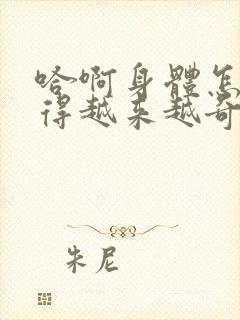 哈啊身體怎
得越来越奇
朱尼